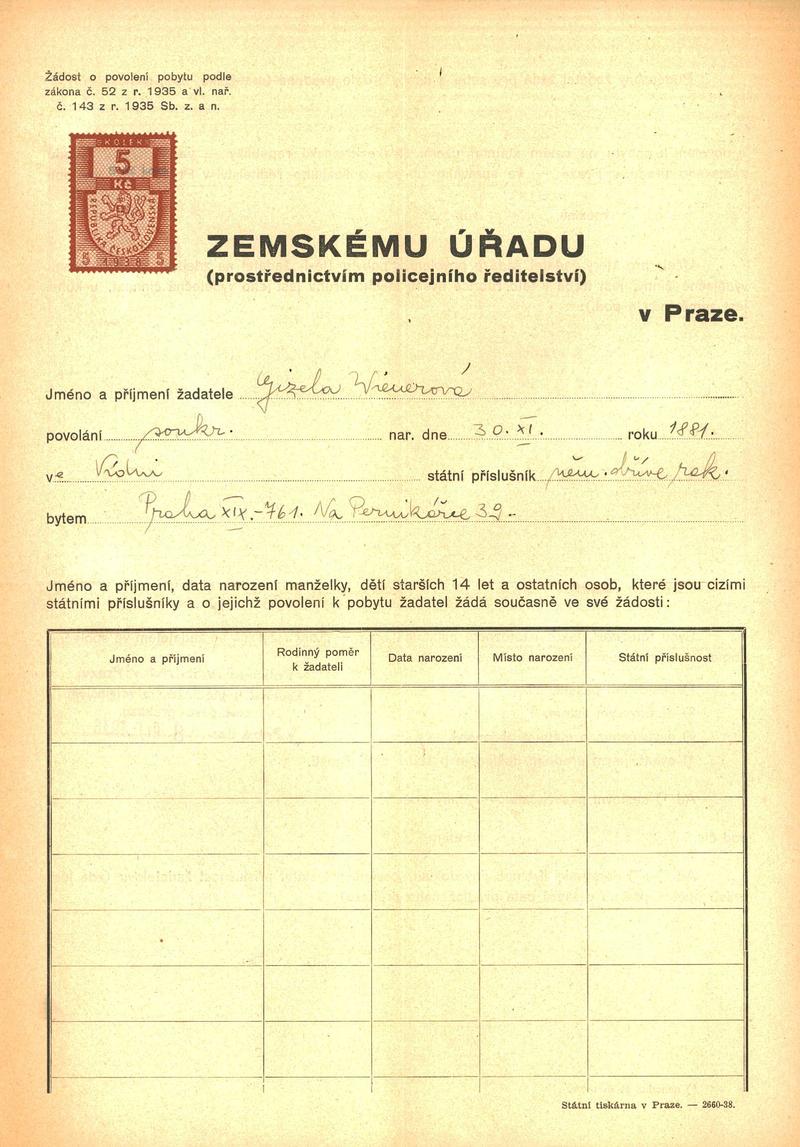 Žádost o povolení pobytu podle
zákona č. 52 z r. 1935 a vl. nař.
č. 143 z r. 1935 Sb. z. a n.
KOLEK
5
Kč
REPUBLIKA ČESKOSLOVENSKÁ
5 5
ZEMSKÉMU ÚŘADU
(prostřednictvím policejního ředitelství)
v Praze.
Jméno a příjmení žadatele Gizela Wienerová
povolání soukr. nar. dne 30. XI. roku 1881.
ve Vídni státní příslušník něm. dříve rak.
bytem Praha XIX.-761. Na Pernikářce 39.-
Jméno a příjmení, data narození manželky, dětí starších 14 let a ostatních osob, které jsou cizími
státními příslušníky a o jejichž povolení k pobytu žadatel žádá současně ve své žádosti:
Jméno a příjmení
Rodinný poměr
k žadateli
Data narození
Místo narození
Státní příslušnost
Státní tiskárna v Praze. — 2660-38.